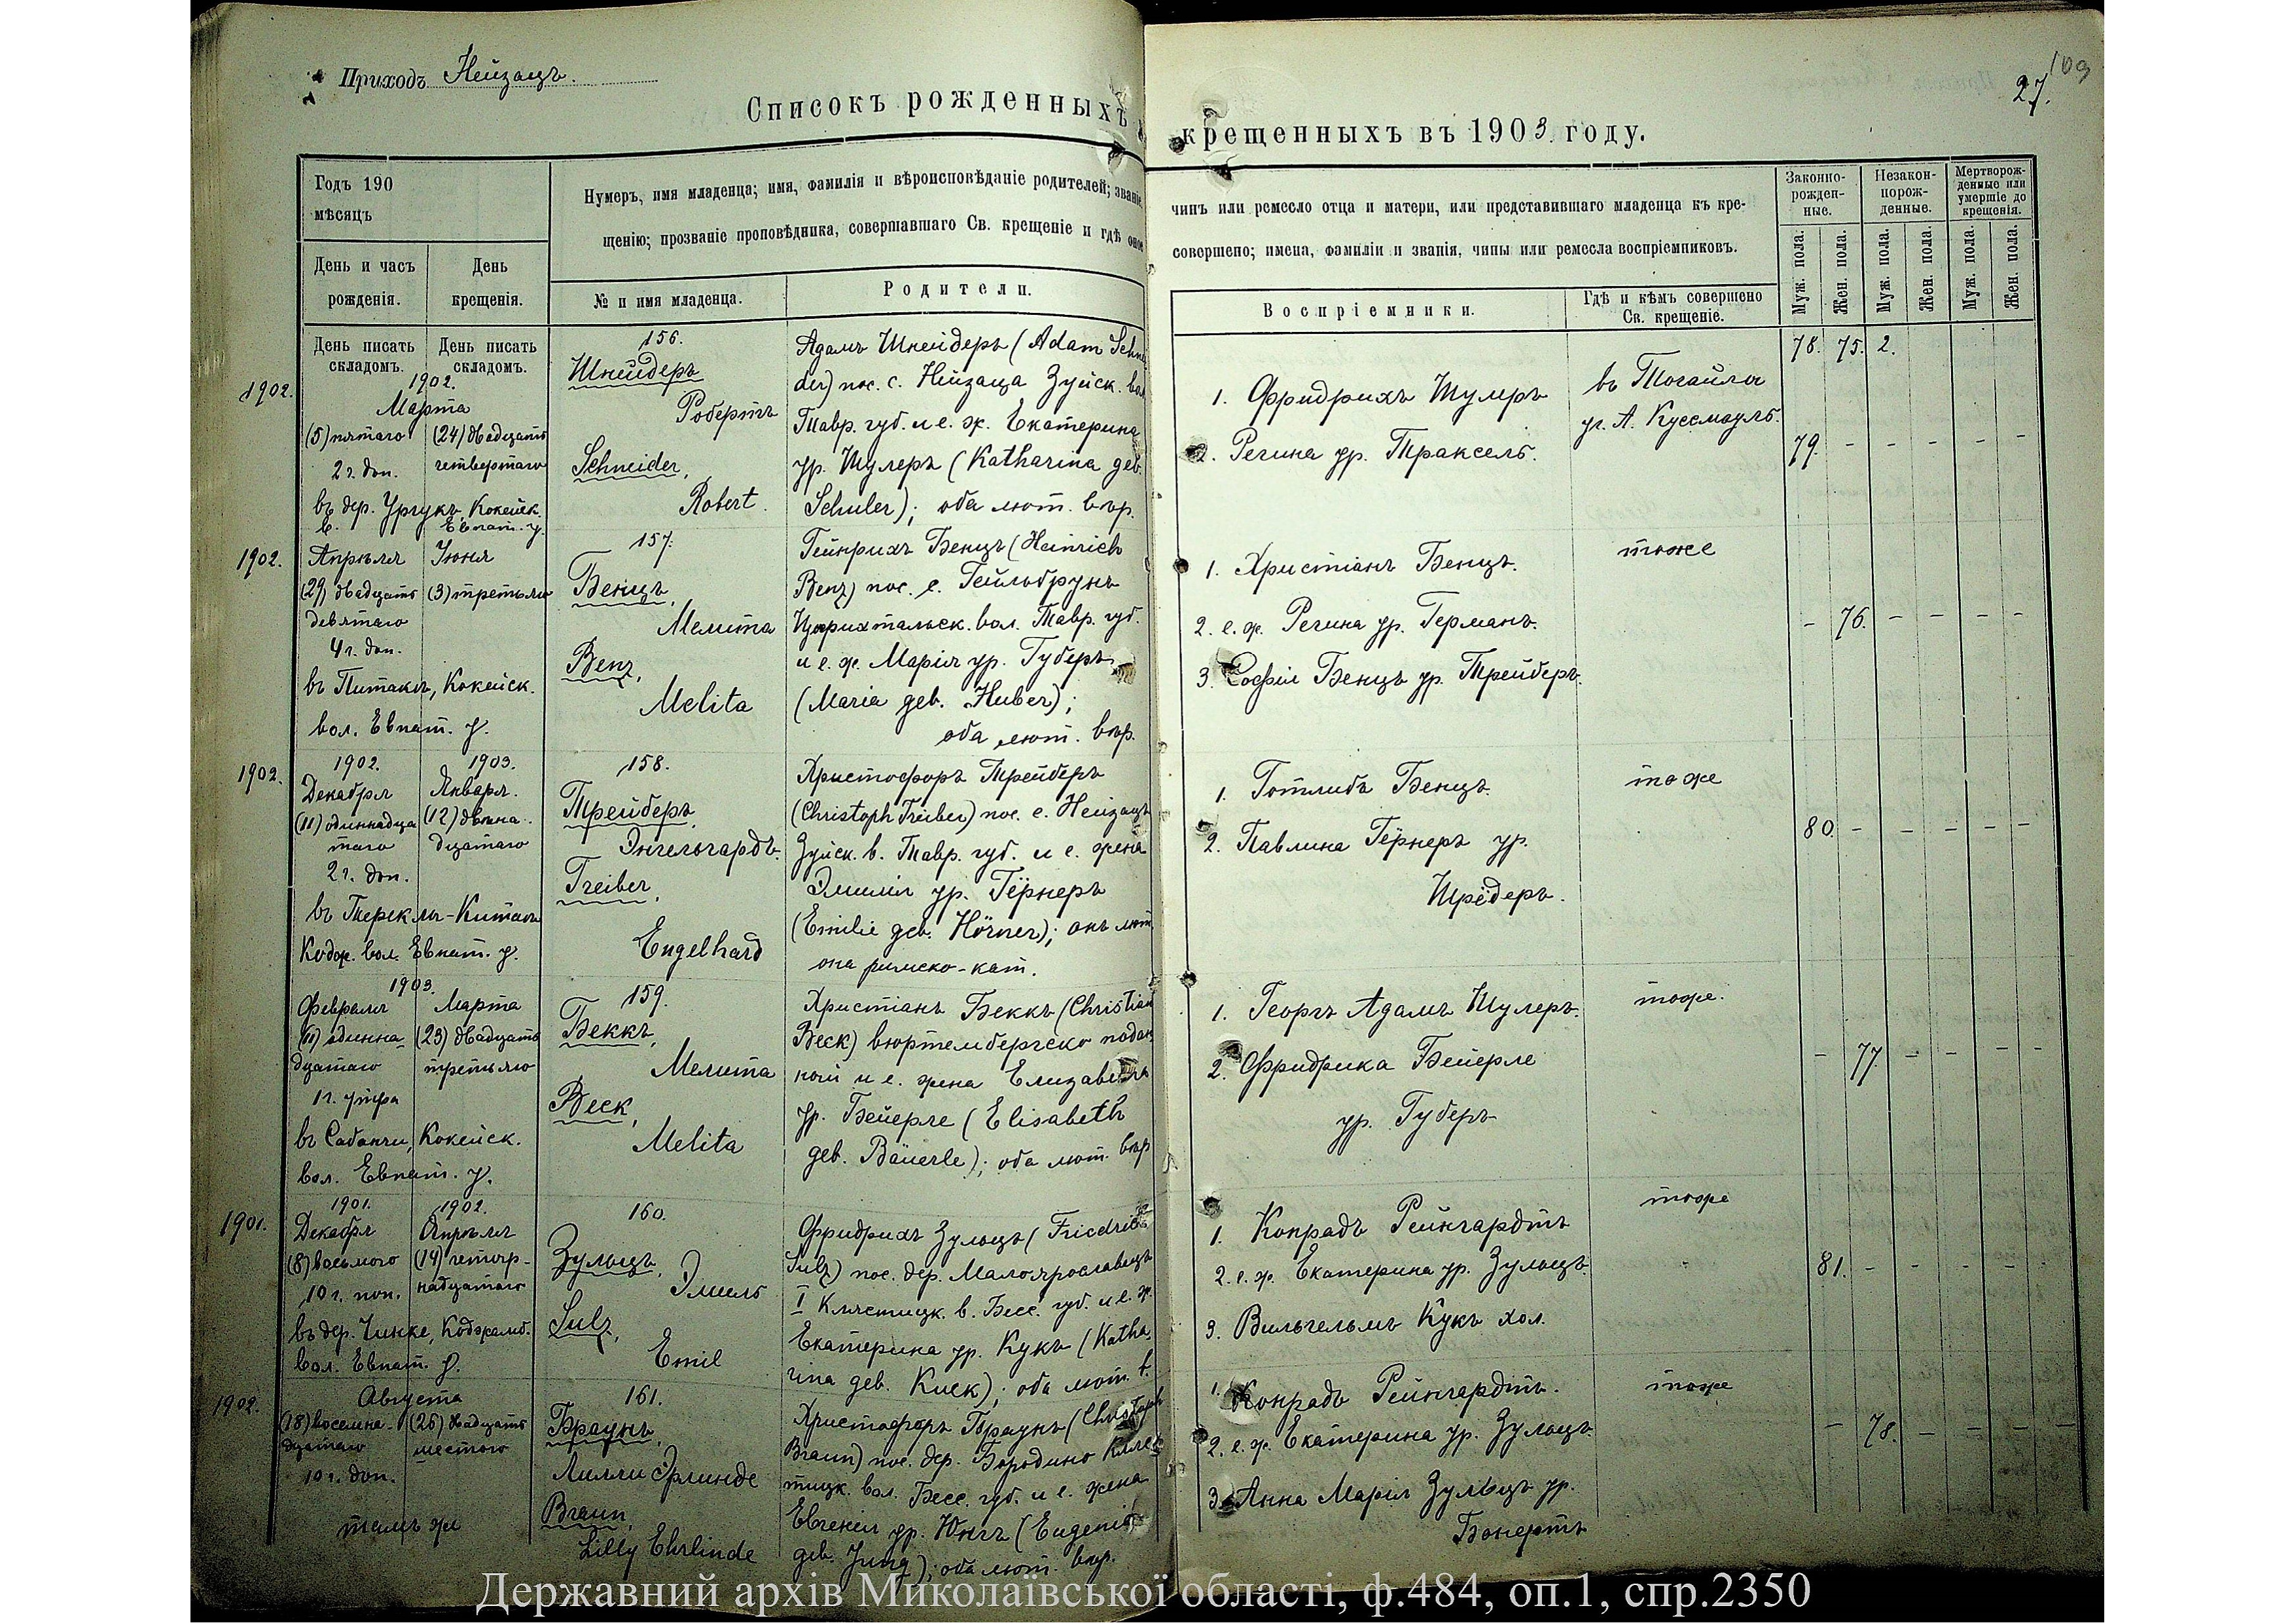 Приходъ Нейзацъ.
Списокъ рожденныхъ
Годъ 190
мѣсяцъ
День и часъ
рожденія.
День
крещенія.
Нумеръ, имя младенца; имя, фамилія и вѣроисповѣданіе родителей; званіе,
щенію; прозваніе проповѣдника, совершавшаго Св. крещеніе и гдѣ оное
№ и имя младенца.
Родители.
День писать
складомъ.
День писать
складомъ.
1902.
1902.
Марта
(5) пятаго
(24) двадцать
2 ч. поп.
четвертаго
въ дер. Ургукъ, Кокейск.
в. Евпат. у.
156.
Шнейдеръ
Робертъ
Schneider,
Robert.
Адамъ Шнейдеръ (Adam Schnei
der) пос. с. Нейзаца Зуйск. вол.
Тавр. губ. и е. ж. Екатерина
ур. Шулеръ (Katharina geb.
Schuler); оба лют. вѣр.
1902.
Апрѣля
Іюня
(29) двадцать
(3) третьяго
девятаго
4 ч. поп.
въ Питакъ, Кокейск.
вол. Евпат. у.
157.
Бенцъ,
Мелита
Benz,
Melita
Гейнрихъ Бенцъ (Heinrich
Benz) пос. с. Гейльбрунъ
Цюрихтальск. вол. Тавр. губ.
и е. ж. Марія ур. Губеръ
(Maria geb. Huber);
оба лют. вѣр.
1902.
1902.
1903.
Декабря
Января.
(11) одиннадца
(12) двѣна-
таго
дцатаго
2 ч. поп.
въ Терекли-Китай
Кодж. вол. Евпат. у.
158.
Трейберъ,
Энгельгардъ.
Treiber,
Engelhard
Христофоръ Трейберъ
(Christoph Treiber) пос. с. Нейзацъ
Зуйск. в. Тавр. губ. и е. жена
Эмилія ур. Гёрнеръ
(Emilie geb. Hörner); онъ лют.
она римско-кат.
1903.
Февраля
Марта
(11) одинна-
(23) двадцать
дцатаго
третьяго
1 ч. утра
въ Сабанчи, Кокейск.
вол. Евпат. у.
159.
Беккъ,
Мелита
Beck,
Melita
Христіанъ Беккъ (Christian
Beck) вюртембергско подан
ный и е. жена Елизавета
ур. Бейерле (Elisabeth
geb. Bäuerle); оба лют. вѣр
1901.
1901.
1902.
Декабря
Апрѣля
(8) восьмого
(14) четыр-
10 ч. поп.
надцатаго
въ дер. Чинке, Коджамб.
вол. Евпат. у.
160.
Зульцъ,
Эмиль
Sulz,
Emil
Фридрихъ Зульцъ (Friedrich
Sulz) пос. дер. Малоярославецъ
I Клястицк. в. Бесс. губ. и е. ж.
Екатерина ур. Кукъ (Katha
rina geb. Kuck); оба лют. в.
1902.
Августа
(18) восемна-
(26) двадцать
дцатаго
шестого
10 ч. поп.
тамъ же
161.
Браунъ,
Лилли Эрлинде
Braun,
Lilly Ehrlinde
Христофоръ Браунъ (Christoph
Braun) пос. дер. Бородино Кляс
тицк. вол. Бесс. губ. и е. жена
Евгенія ур. Юнгъ (Eugenie
geb. Jung); оба лют. вѣр.
109
27.
крещенныхъ въ 1903 году.
чинъ или ремесло отца и матери, или представившаго младенца къ кре-
совершено; имена, фамиліи и званія, чины или ремесла воспріемниковъ.
Воспріемники.
Гдѣ и кѣмъ совершено
Св. крещеніе.
Законно-
рожден-
ные.
Незакон-
порож-
денные.
Мертворож-
денные или
умершіе до
крещенія.
Муж. пола.
Жен. пола.
Муж. пола.
Жен. пола.
Муж. пола.
Жен. пола.
78. 75. 2.
1. Фридрихъ Шулеръ
въ Тогайлы
уч. А. Куссмауль.
2. Регина ур. Траксель.
79. - - - - -
1. Христіанъ Бенцъ.
тоже
2. е. ж. Регина ур. Германъ.
- 76. - - - -
3. Софія Бенцъ ур. Трейберъ.
1. Готлибъ Бенцъ.
тоже
2. Павлина Гёрнеръ ур.
80. - - - - -
Шрёдеръ.
1. Георгъ Адамъ Шулеръ.
тоже.
2. Фридрика Бейерле
- 77. - - - -
ур. Губеръ
1. Конрадъ Рейнгардтъ
тоже
2. е. ж. Екатерина ур. Зульцъ.
81. - - - - -
3. Вильгельмъ Кукъ хол.
1. Конрадъ Рейнгардтъ.
тоже
2. е. ж. Екатерина ур. Зульцъ.
- 78. - - - -
3. Анна Марія Зульцъ ур.
Бонертъ
Державний архів Миколаївської області, ф.484, оп.1, спр.2350